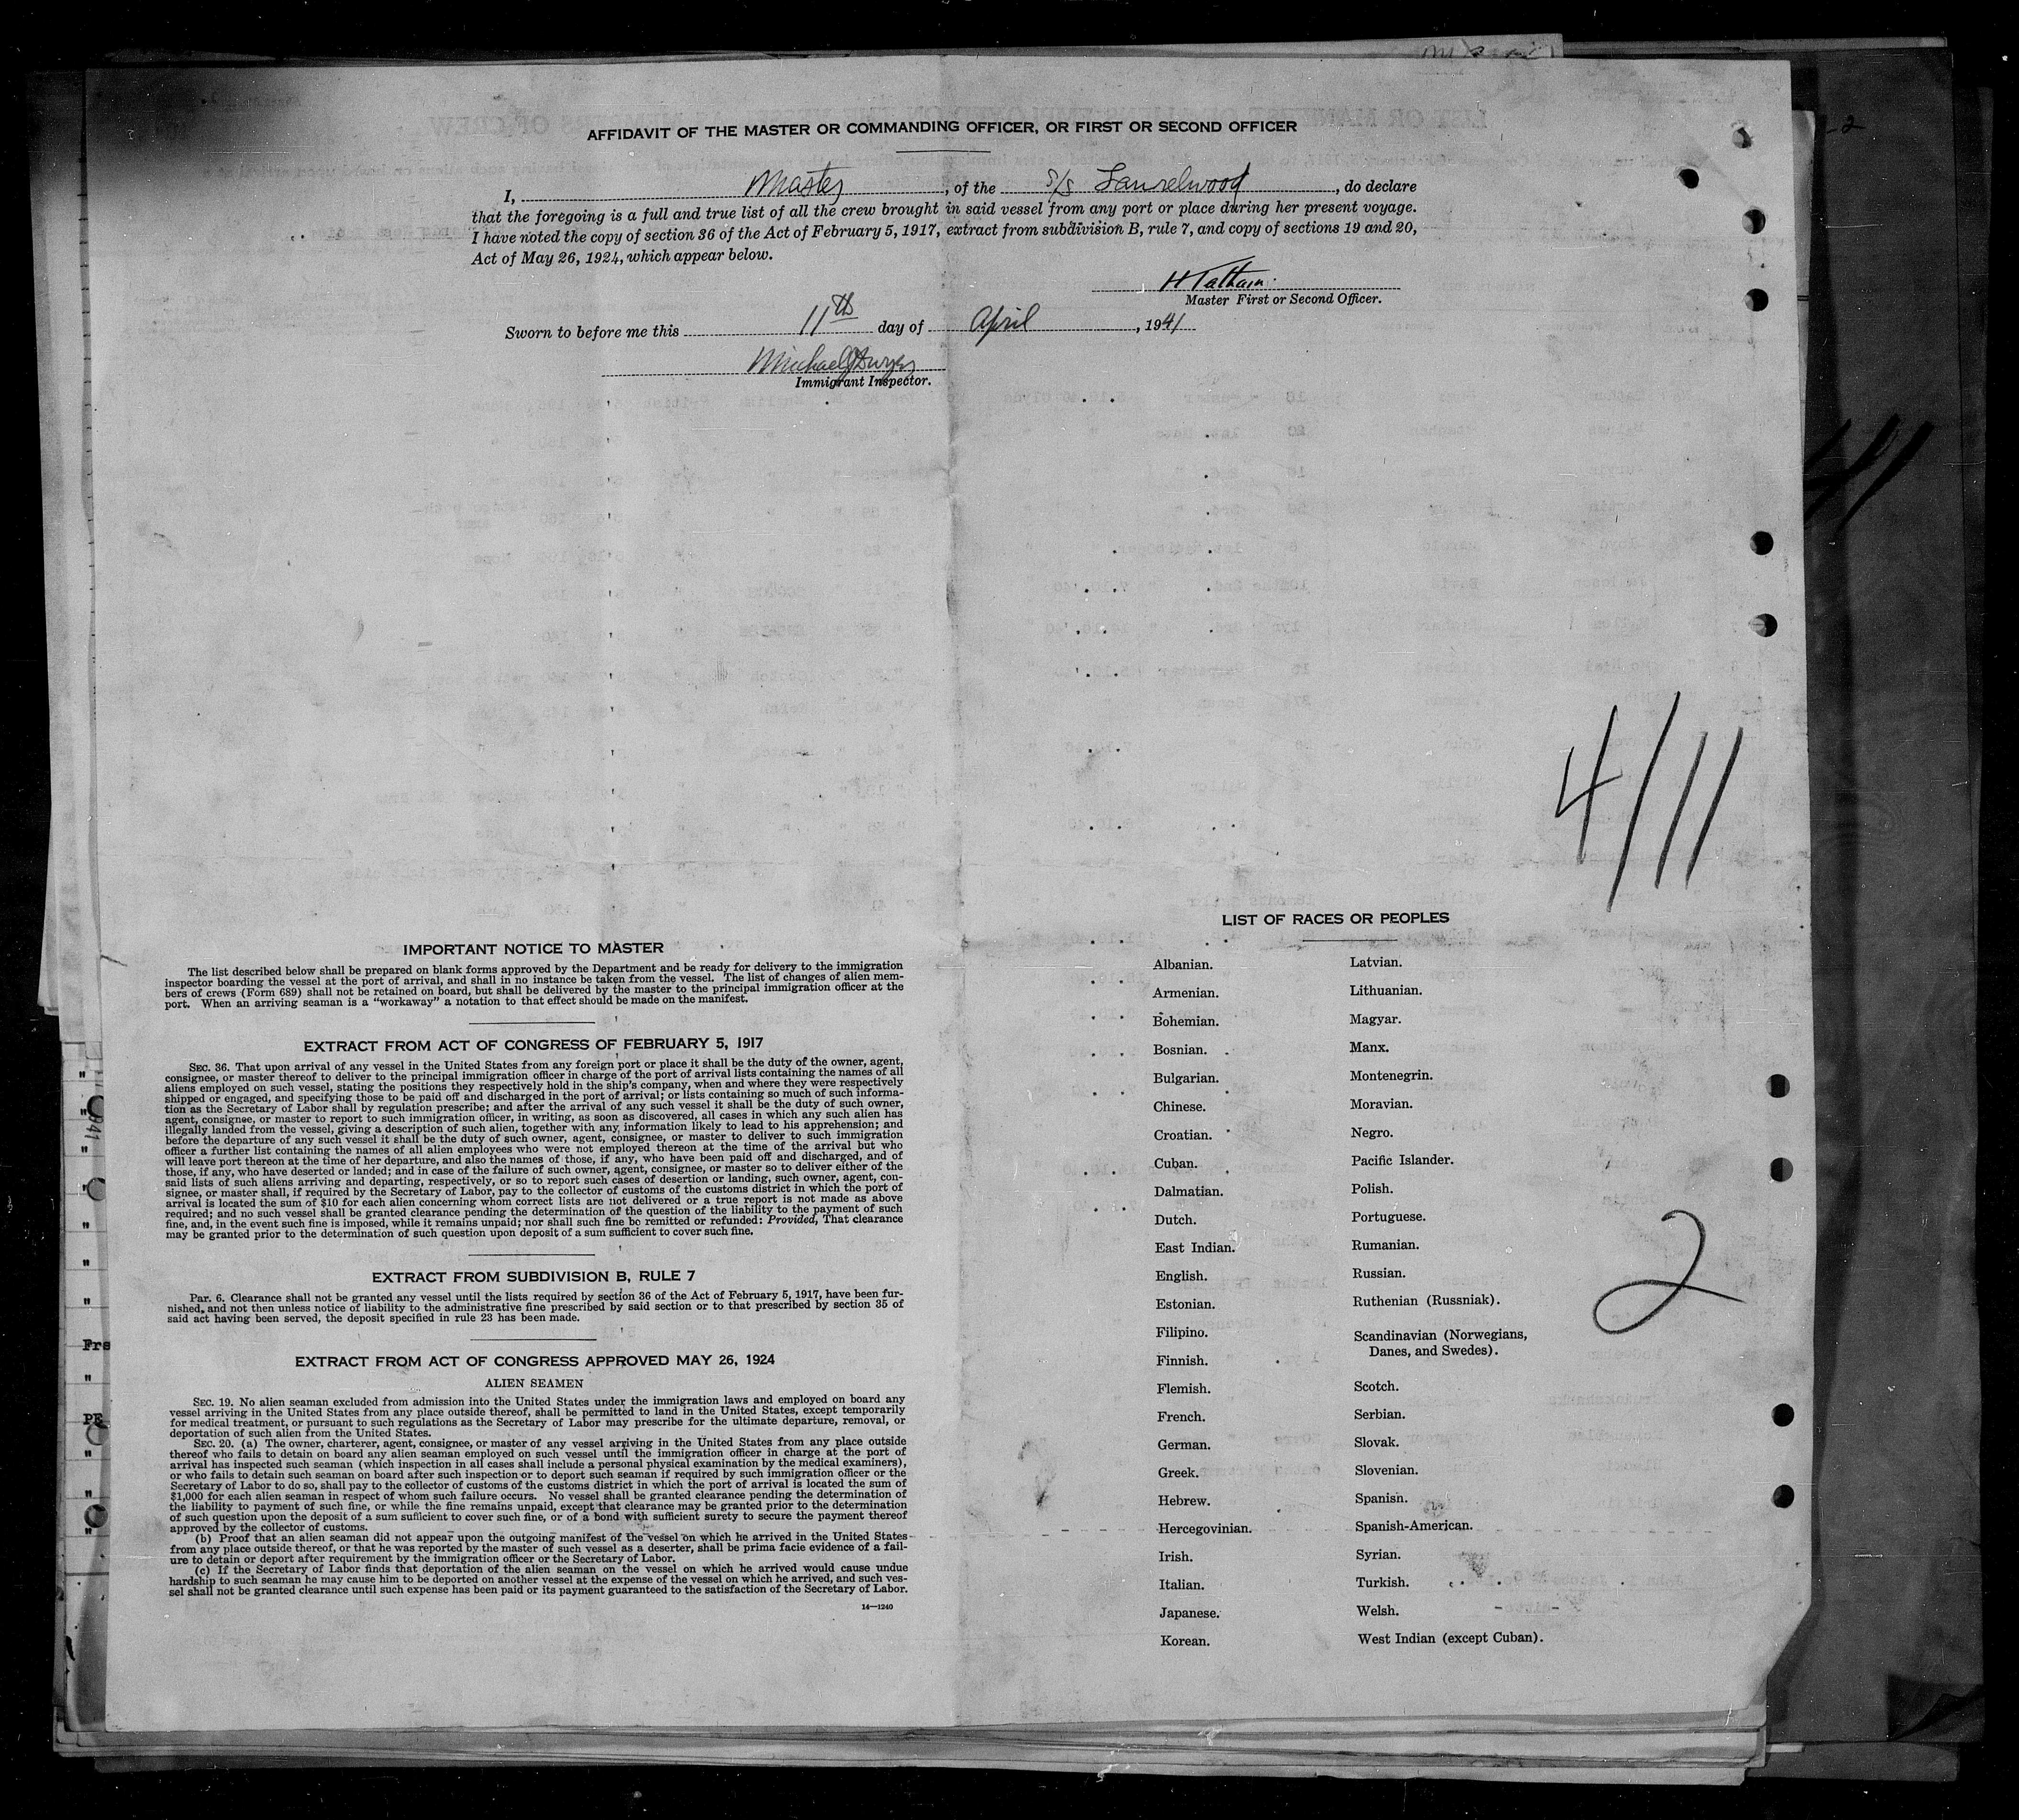 AFFIDAVIT OF THE MASTER OR COMMANDING OFFICER, OR FIRST OR SECOND OFFICER
I, Master, of the S/S Laurelwood, do declare
that the foregoing is a full and true list of all the crew brought in said vessel from any port or place during her present voyage.
I have noted the copy of section 36 of the Act of February 5, 1917, extract from subdivision B, rule 7, and copy of sections 19 and 20,
Act of May 26, 1924, which appear below.
H Tatham
Master First or Second Officer.
Sworn to before me this 11th day of April, 1941
Michael J Dwyer
Immigrant Inspector.
4/11
IMPORTANT NOTICE TO MASTER
The list described below shall be prepared on blank forms approved by the Department and be ready for delivery to the immigration
inspector boarding the vessel at the port of arrival, and shall in no instance be taken from the vessel. The list of changes of alien mem-
bers of crews (Form 689) shall not be retained on board, but shall be delivered by the master to the principal immigration officer at the
port. When an arriving seaman is a "workaway" a notation to that effect should be made on the manifest.
EXTRACT FROM ACT OF CONGRESS OF FEBRUARY 5, 1917
SEC. 36. That upon arrival of any vessel in the United States from any foreign port or place it shall be the duty of the owner, agent,
consignee, or master thereof to deliver to the principal immigration officer in charge of the port of arrival lists containing the names of all
aliens employed on such vessel, stating the positions they respectively hold in the ship's company, when and where they were respectively
shipped or engaged, and specifying those to be paid off and discharged in the port of arrival; or lists containing so much of such informa-
tion as the Secretary of Labor shall by regulation prescribe; and after the arrival of any such vessel it shall be the duty of such owner,
agent, consignee, or master to report to such immigration officer, in writing, as soon as discovered, all cases in which any such alien has
illegally landed from the vessel, giving a description of such alien, together with any information likely to lead to his apprehension; and
before the departure of any such vessel it shall be the duty of such owner, agent, consignee, or master to deliver to such immigration
officer a further list containing the names of all alien employees who were not employed thereon at the time of the arrival but who
will leave port thereon at the time of her departure, and also the names of those, if any, who have been paid off and discharged, and of
those, if any, who have deserted or landed; and in case of the failure of such owner, agent, consignee, or master so to deliver either of the
said lists of such aliens arriving and departing, respectively, or so to report such cases of desertion or landing, such owner, agent, con-
signee, or master shall, if required by the Secretary of Labor, pay to the collector of customs of the customs district in which the port of
arrival is located the sum of $10 for each alien concerning whom correct lists are not delivered or a true report is not made as above
required; and no such vessel shall be granted clearance pending the determination of the question of the liability to the payment of such
fine, and, in the event such fine is imposed, while it remains unpaid; nor shall such fine be remitted or refunded: Provided, That clearance
may be granted prior to the determination of such question upon deposit of a sum sufficient to cover such fine.
EXTRACT FROM SUBDIVISION B, RULE 7
PAR. 6. Clearance shall not be granted any vessel until the lists required by section 36 of the Act of February 5, 1917, have been fur-
nished, and not then unless notice of liability to the administrative fine prescribed by said section or to that prescribed by section 35 of
said act having been served, the deposit specified in rule 23 has been made.
EXTRACT FROM ACT OF CONGRESS APPROVED MAY 26, 1924
ALIEN SEAMEN
SEC. 19. No alien seaman excluded from admission into the United States under the immigration laws and employed on board any
vessel arriving in the United States from any place outside thereof, shall be permitted to land in the United States, except temporarily
for medical treatment, or pursuant to such regulations as the Secretary of Labor may prescribe for the ultimate departure, removal, or
deportation of such alien from the United States.
SEC. 20. (a) The owner, charterer, agent, consignee, or master of any vessel arriving in the United States from any place outside
thereof who fails to detain on board any alien seaman employed on such vessel until the immigration officer in charge at the port of
arrival has inspected such seaman (which inspection in all cases shall include a personal physical examination by the medical examiners),
or who fails to detain such seaman on board after such inspection or to deport such seaman if required by such immigration officer or the
Secretary of Labor to do so, shall pay to the collector of customs of the customs district in which the port of arrival is located the sum of
$1,000 for each alien seaman in respect of whom such failure occurs. No vessel shall be granted clearance pending the determination of
the liability to payment of such fine, or while the fine remains unpaid, except that clearance may be granted prior to the determination
of such question upon the deposit of a sum sufficient to cover such fine, or of a bond with sufficient surety to secure the payment thereof
approved by the collector of customs.
(b) Proof that an alien seaman did not appear upon the outgoing manifest of the vessel on which he arrived in the United States
from any place outside thereof, or that he was reported by the master of such vessel as a deserter, shall be prima facie evidence of a fail-
ure to detain or deport after requirement by the immigration officer or the Secretary of Labor.
(c) If the Secretary of Labor finds that deportation of the alien seaman on the vessel on which he arrived would cause undue
hardship to such seaman he may cause him to be deported on another vessel at the expense of the vessel on which he arrived, and such ves-
sel shall not be granted clearance until such expense has been paid or its payment guaranteed to the satisfaction of the Secretary of Labor.
14—1240
LIST OF RACES OR PEOPLES
Albanian. Latvian.
Armenian. Lithuanian.
Bohemian. Magyar.
Bosnian. Manx.
Bulgarian. Montenegrin.
Chinese. Moravian.
Croatian. Negro.
Cuban. Pacific Islander.
Dalmatian. Polish.
Dutch. Portuguese.
East Indian. Rumanian.
English. Russian.
Estonian. Ruthenian (Russniak).
Filipino. Scandinavian (Norwegians,
Danes, and Swedes).
Finnish.
Flemish. Scotch.
French. Serbian.
German. Slovak.
Greek. Slovenian.
Hebrew. Spanish.
Hercegovinian. Spanish-American.
Irish. Syrian.
Italian. Turkish.
Japanese. Welsh.
Korean. West Indian (except Cuban).
2